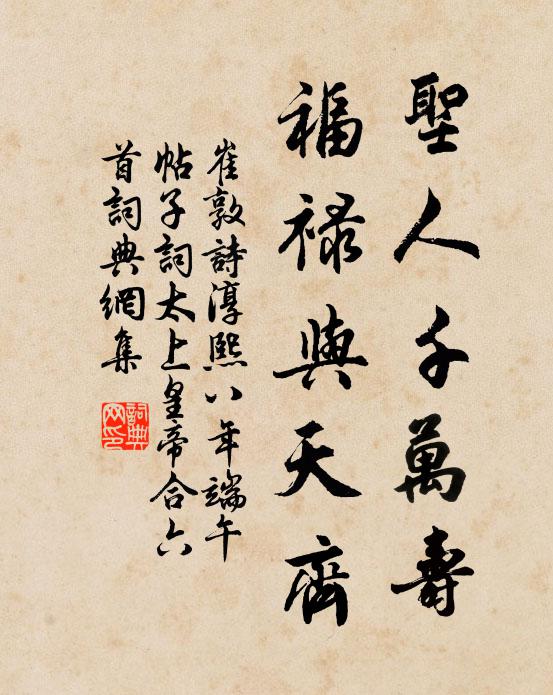 聖人千萬壽
福祿與天齊
崔敦詩淳熙八年端午
帖子詞太上皇帝合六
首詞典網集
詞典
网印